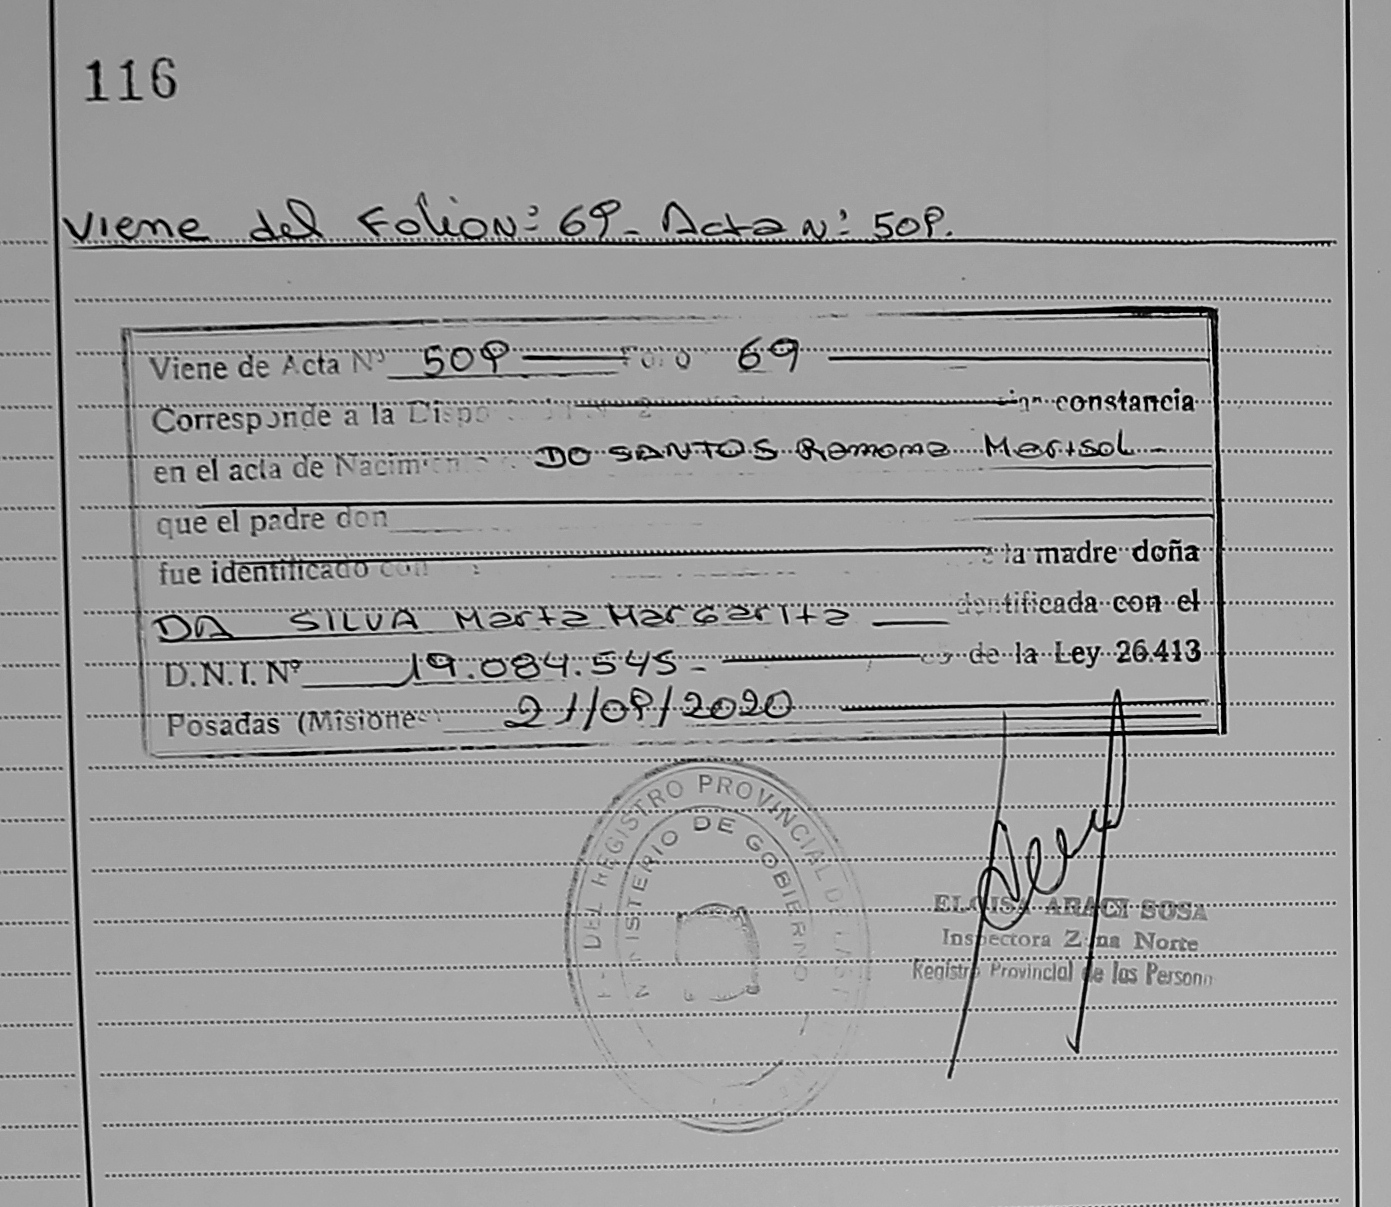 116
Viene del Folio Nº: 69- Acta Nº: 509.
Viene de Acta Nº 509 Folio 69
Corresponde a la constancia
en el acta de Nacimiento DO SANTOS Ramona Marisol -
que el padre don
fue identificado con la madre doña
DA SILVA Marta Margarita identificada con el
D.N.I. Nº 19.084.545- de la Ley 26.413
Posadas (Misiones) 21/09/2020
DEL REGISTRO PROVINCIAL DE LAS
MINISTERIO DE GOBIERNO
ELOISA ARACI SOSA
Inspectora Zona Norte
Registro Provincial de las Personas